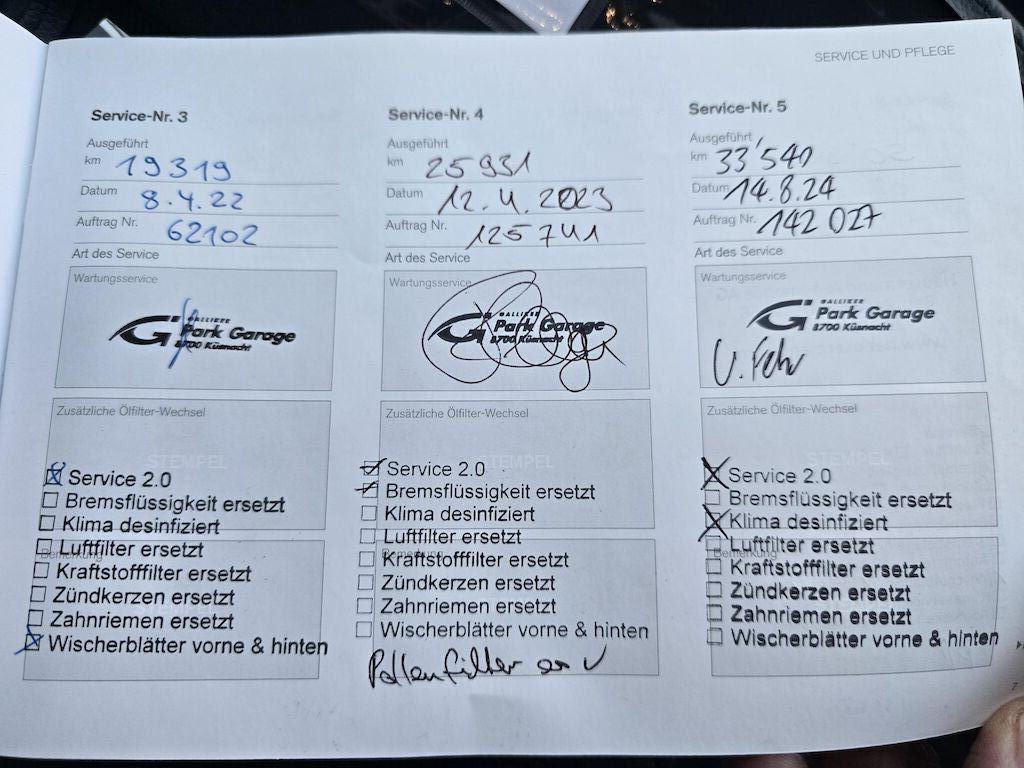 SERVICE UND PFLEGE
Service-Nr. 3
Ausgeführt
km 19319
Datum 8.4.22
Auftrag Nr. 62102
Art des Service
Wartungsservice
GALLIKER
Park Garage
8700 Küsnacht
Zusätzliche Ölfilter-Wechsel
STEMPEL
Service 2.0
Bremsflüssigkeit ersetzt
Klima desinfiziert
Luftfilter ersetzt
Bemerkung
Kraftstofffilter ersetzt
Zündkerzen ersetzt
Zahnriemen ersetzt
Wischerblätter vorne & hinten
Service-Nr. 4
Ausgeführt
km 25931
Datum 12.4.2023
Auftrag Nr. 125741
Art des Service
Wartungsservice
GALLIKER
Park Garage
8700 Küsnacht
Zusätzliche Ölfilter-Wechsel
STEMPEL
Service 2.0
Bremsflüssigkeit ersetzt
Klima desinfiziert
Luftfilter ersetzt
Bemerkung
Kraftstofffilter ersetzt
Zündkerzen ersetzt
Zahnriemen ersetzt
Wischerblätter vorne & hinten
Pollenfilter
Service-Nr. 5
Ausgeführt
km 33'540
Datum 14.8.24
Auftrag Nr. 142027
Art des Service
Wartungsservice
GALLIKER
Park Garage
8700 Küsnacht
Zusätzliche Ölfilter-Wechsel
STEMPEL
Service 2.0
Bremsflüssigkeit ersetzt
Klima desinfiziert
Luftfilter ersetzt
Bemerkung
Kraftstofffilter ersetzt
Zündkerzen ersetzt
Zahnriemen ersetzt
Wischerblätter vorne & hinten
7